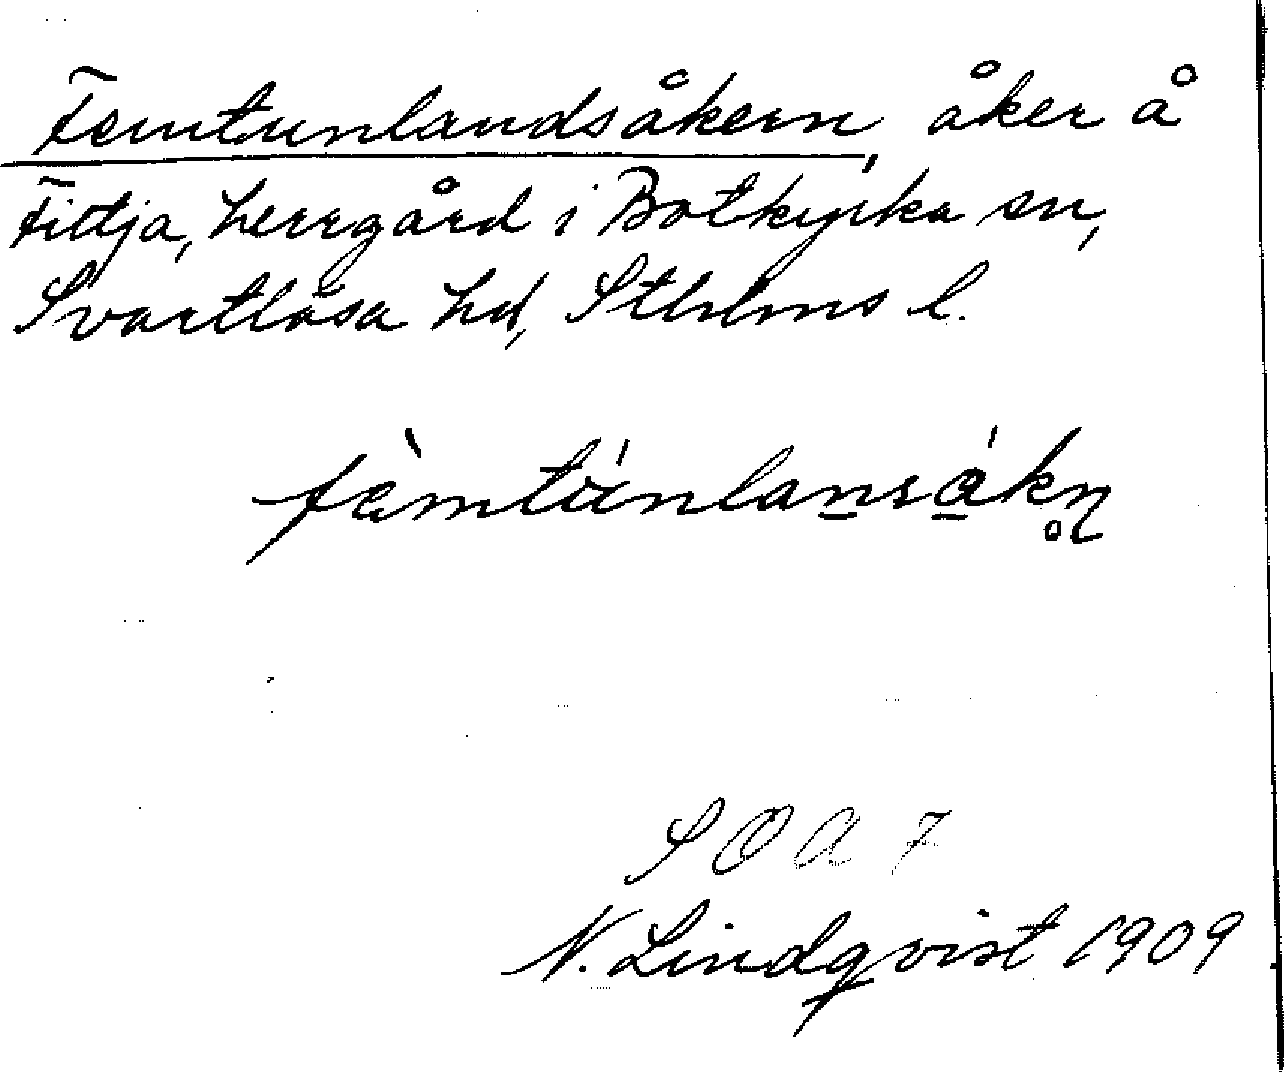 Femtunlandsåkern, åker å
Fittja, herrgård i Botkyrka sn,
Svartlösa hd, Sthlms l.
fèmtúnlansåkn̥
S O A 7
N. Lindqvist 1909